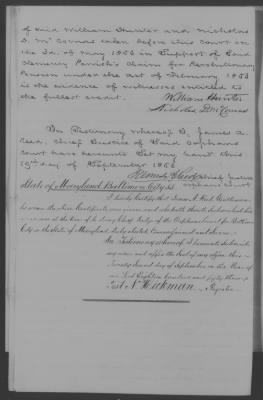 of said William Hunter and Nicholas
S. McComas taken before this court on
the 3d. of May 1853 in support of said
Clemency Parrish's Claim for Revolutionary
Pension under the act of February 1853
is the evidence of witnesses entitled to
the fullest credit.
William Hunter
Nicholas S McComas
In Testimony whereof I, James A.
Reed, Chief Justice of said Orphans
Court have hereunto set my hand this
19th day of September 1853
Chief Justice
Orphans court
State of Maryland Baltimore City SS.
I hereby Certify that James A Reed Gentleman
before whom the above Certificate was given and who hath thereto subscribed his
name was at the time of so doing Chief Judge of the Orphans Court of Baltimore
City in the State of Maryland duly elected Commissioned and sworn
In Testimony whereof I hereunto subscribe
my name and affix the Seal of my office this
Twenty second day of September in the Year of
our Lord Eighteen hundred and fifty three
Test N Hickman Register